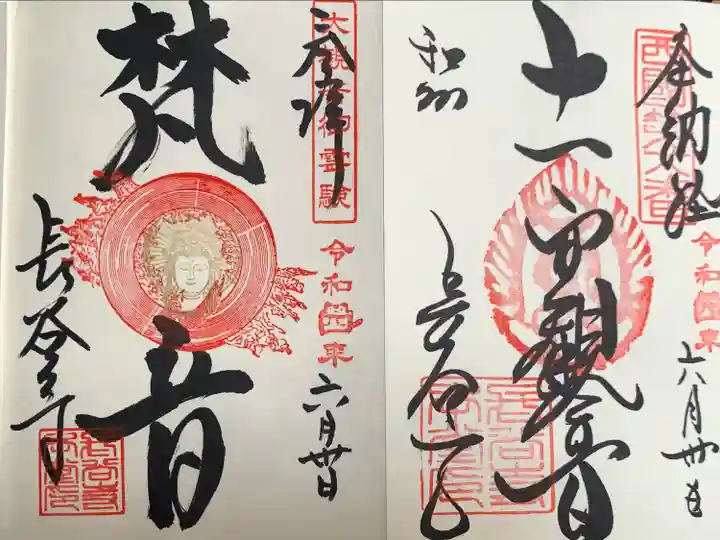 奉納経
令和四年
六月卅日
十一面観音
和州
長谷寺
奉拝
大観音御霊験
令和四年
六月卅日
梵音
長谷寺